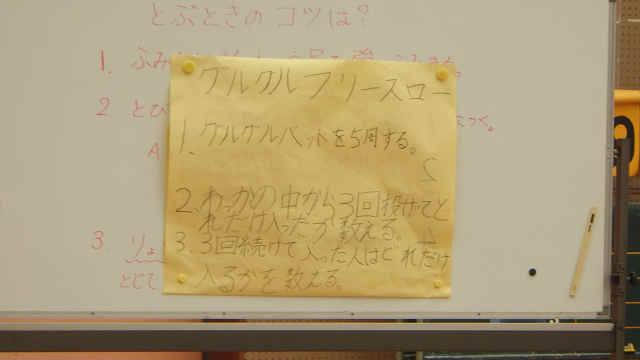 とぶときのコツは?
1. ふみ
2 とび
3 りょ
とじて
クルクルフリースロー
1. クルクルバットを5周する。
2. わっかの中から3回投げてど
れだけ入ったか数える。
3. 3回続けて入った人はどれだけ
入るかを数える。